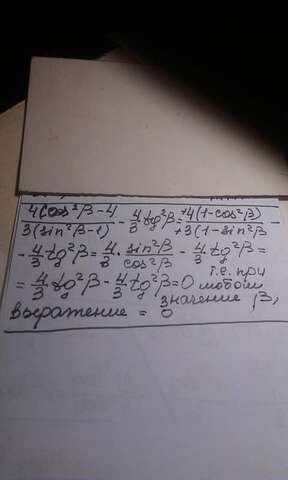 4cos²β-4 / 3(sin²β-1) - 4/3 tg²β = +4(1-cos²β) / +3(1-sin²β) -
- 4/3 tg²β = 4/3 · sin²β / cos²β - 4/3 tg²β =
= 4/3 tg²β - 4/3 tg²β = 0 т.е. при любом
значение β,
выражение = 0